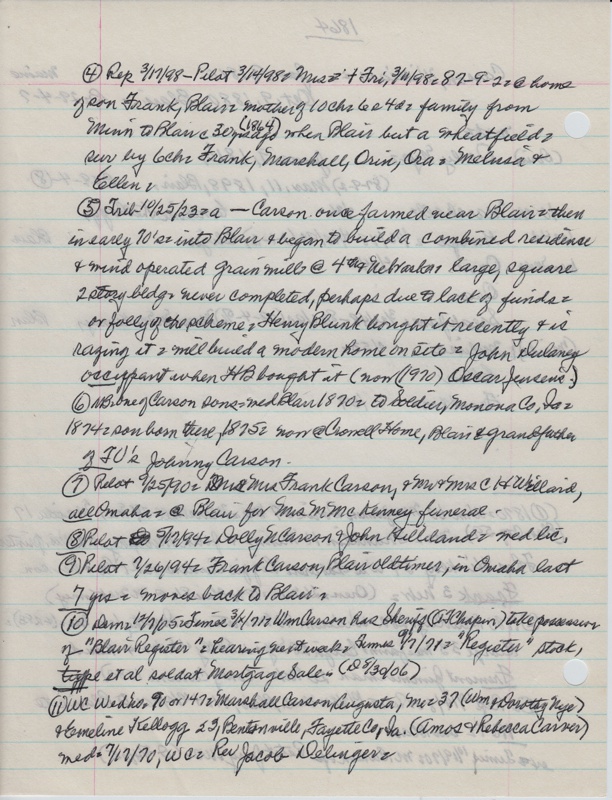 1864
④ Rep 3/17/98 - Pilot 3/14/98 = Mrs = + Fri, 3/11/98 = 87-9-2 = @ home
of son Frank, Blair = mother of 10 chr 6 & 4 d = family from
Minn to Blair c 30 yrs ago (1864) when Blair but a wheatfield =
sur by 6 chr = Frank, Marshall, Orin, Ora = Melusa &
Ellen =
⑤ Trib - 10/25/23 = a — Carson once farmed near Blair = then
in early 70's = into Blair & began to build a combined residence
& wind operated grain mill = @ 4th & Nebraska = large, square
2 story bldg = never completed, perhaps due to lack of funds =
or folly of the scheme = Henry Blunk bought it recently & is
razing it = will build a modern home on site = John Dulaney
occupant when HB bought it (now (1970) Oscar Jensens.)
⑥ one of Carson sons = med Blair 1870 = to Soldier, Monona Co, Ia =
1874 = son born there, 1875 = now @ Crowell Home, Blair & grandfather
of TV's Johnny Carson.
⑦ Pilot 9/25/90 = Mrs Frank Carson, & Mr & Mrs C H Willard,
all Omaha = @ Blair for Mrs N McKenney funeral.
⑧ Pilot 5/17/94 = Dolly N Carson & John Hilleland = med lic.
⑨ Pilot 7/26/94 = Frank Carson, Blair oldtimer, in Omaha last
7 yrs = moves back to Blair =
⑩ Dem = Times 3/4/71 = Wm Carson has Sheriff (A T Chapin) take possession
of "Blair Register" = hearing next week = Times 9/7/71 = "Register" stock,
type et al sold at Mortgage Sale. (D 8/30/06)
⑪ WC Wed Rec 90 or 147 = Marshall Carson, Augusta, Me = 37 (Wm & Dorothy Nye)
& Emeline Kellogg 23, Bentonville, Fayette Co, Ia. (Amos & Rebecca Carver)
med = 7/17/70, WC = Rev Jacob Delinger =